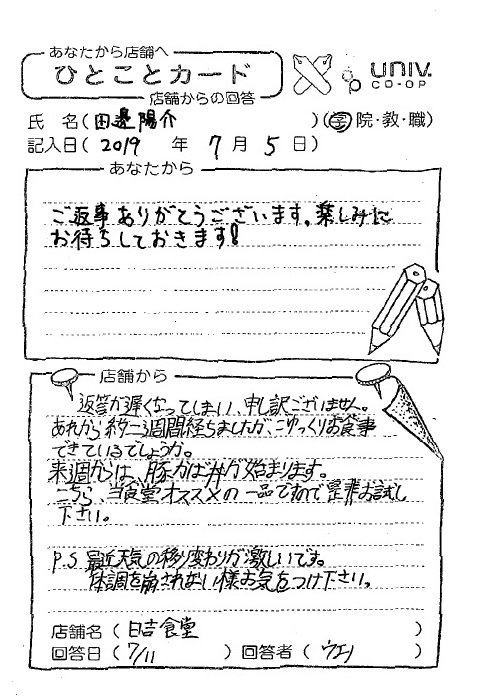 あなたから店舗へ
ひとことカード
店舗からの回答
univ.
CO-OP
氏 名(田邊陽介 )(学 院・教・職)
記入日(2019 年 7月 5日)
あなたから
ご返事ありがとうございます。楽しみに
お待ちしておきます!
店舗から
返答が遅くなってしまい、申し訳ございません。
あれから約一週間経ちましたが、ごゆっくりお食事
できているでしょうか。
来週からは、豚かば丼が始まります。
こちら、当食堂オススメの一品ですので是非お試し
下さい。
P.S 最近天気の移り変わりが激しいです。
体調を崩されない様お気をつけ下さい。
店舗名(日吉食堂 )
回答日(7/11 )回答者(ウエノ )